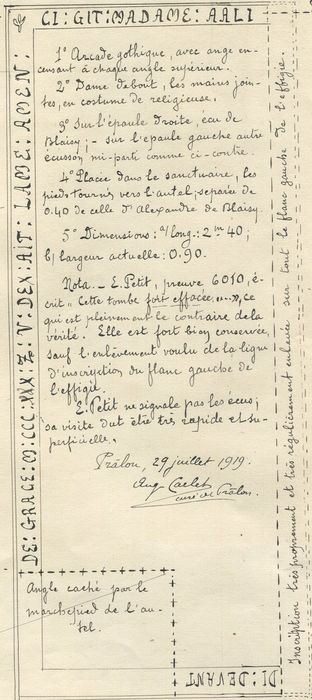 CI : GIT : MADAME : AALI
1° Arcade gothique, avec ange en-
censant à chaque angle supérieur.
2° Dame debout, les mains join-
tes, en costume de religieuse.
3° Sur l'épaule droite, ecu de
Blaisy ; - sur l'epaule gauche autre
écusson mi-parti comme ci-contre.
4° Placée dans le sanctuaire, les
pieds tournés vers l'autel, separée de
0.40 de celle d'Alexandre de Blaisy.
5° Dimensions : a/ long. : 2m 40 ;
b/ largeur actuelle : 0.90.
Nota. - E. Petit, preuve 6010, é-
crit "Cette tombe fort effacée...", ce
qui est pleinement le contraire de la
vérité. Elle est fort bien conservée,
sauf l'enlèvement voulu de la ligne
d'inscription du flanc gauche de
l'effigie.
E. Petit ne signale pas les écus ;
sa visite dut être très rapide et su-
perficielle.
Prâlon, 29 juillet 1919.
Aug. Cachet
curé de Prâlon.
Inscription très proprement et très régulièrement enlevée sur tout le flanc gauche de l'effigie.
DI : DEVANT
Angle caché par le
marchepied de l'au-
tel.
DE : GRACE : M : CCC : XXX : Z : V : DEX : AIT : LAME : AMEN :